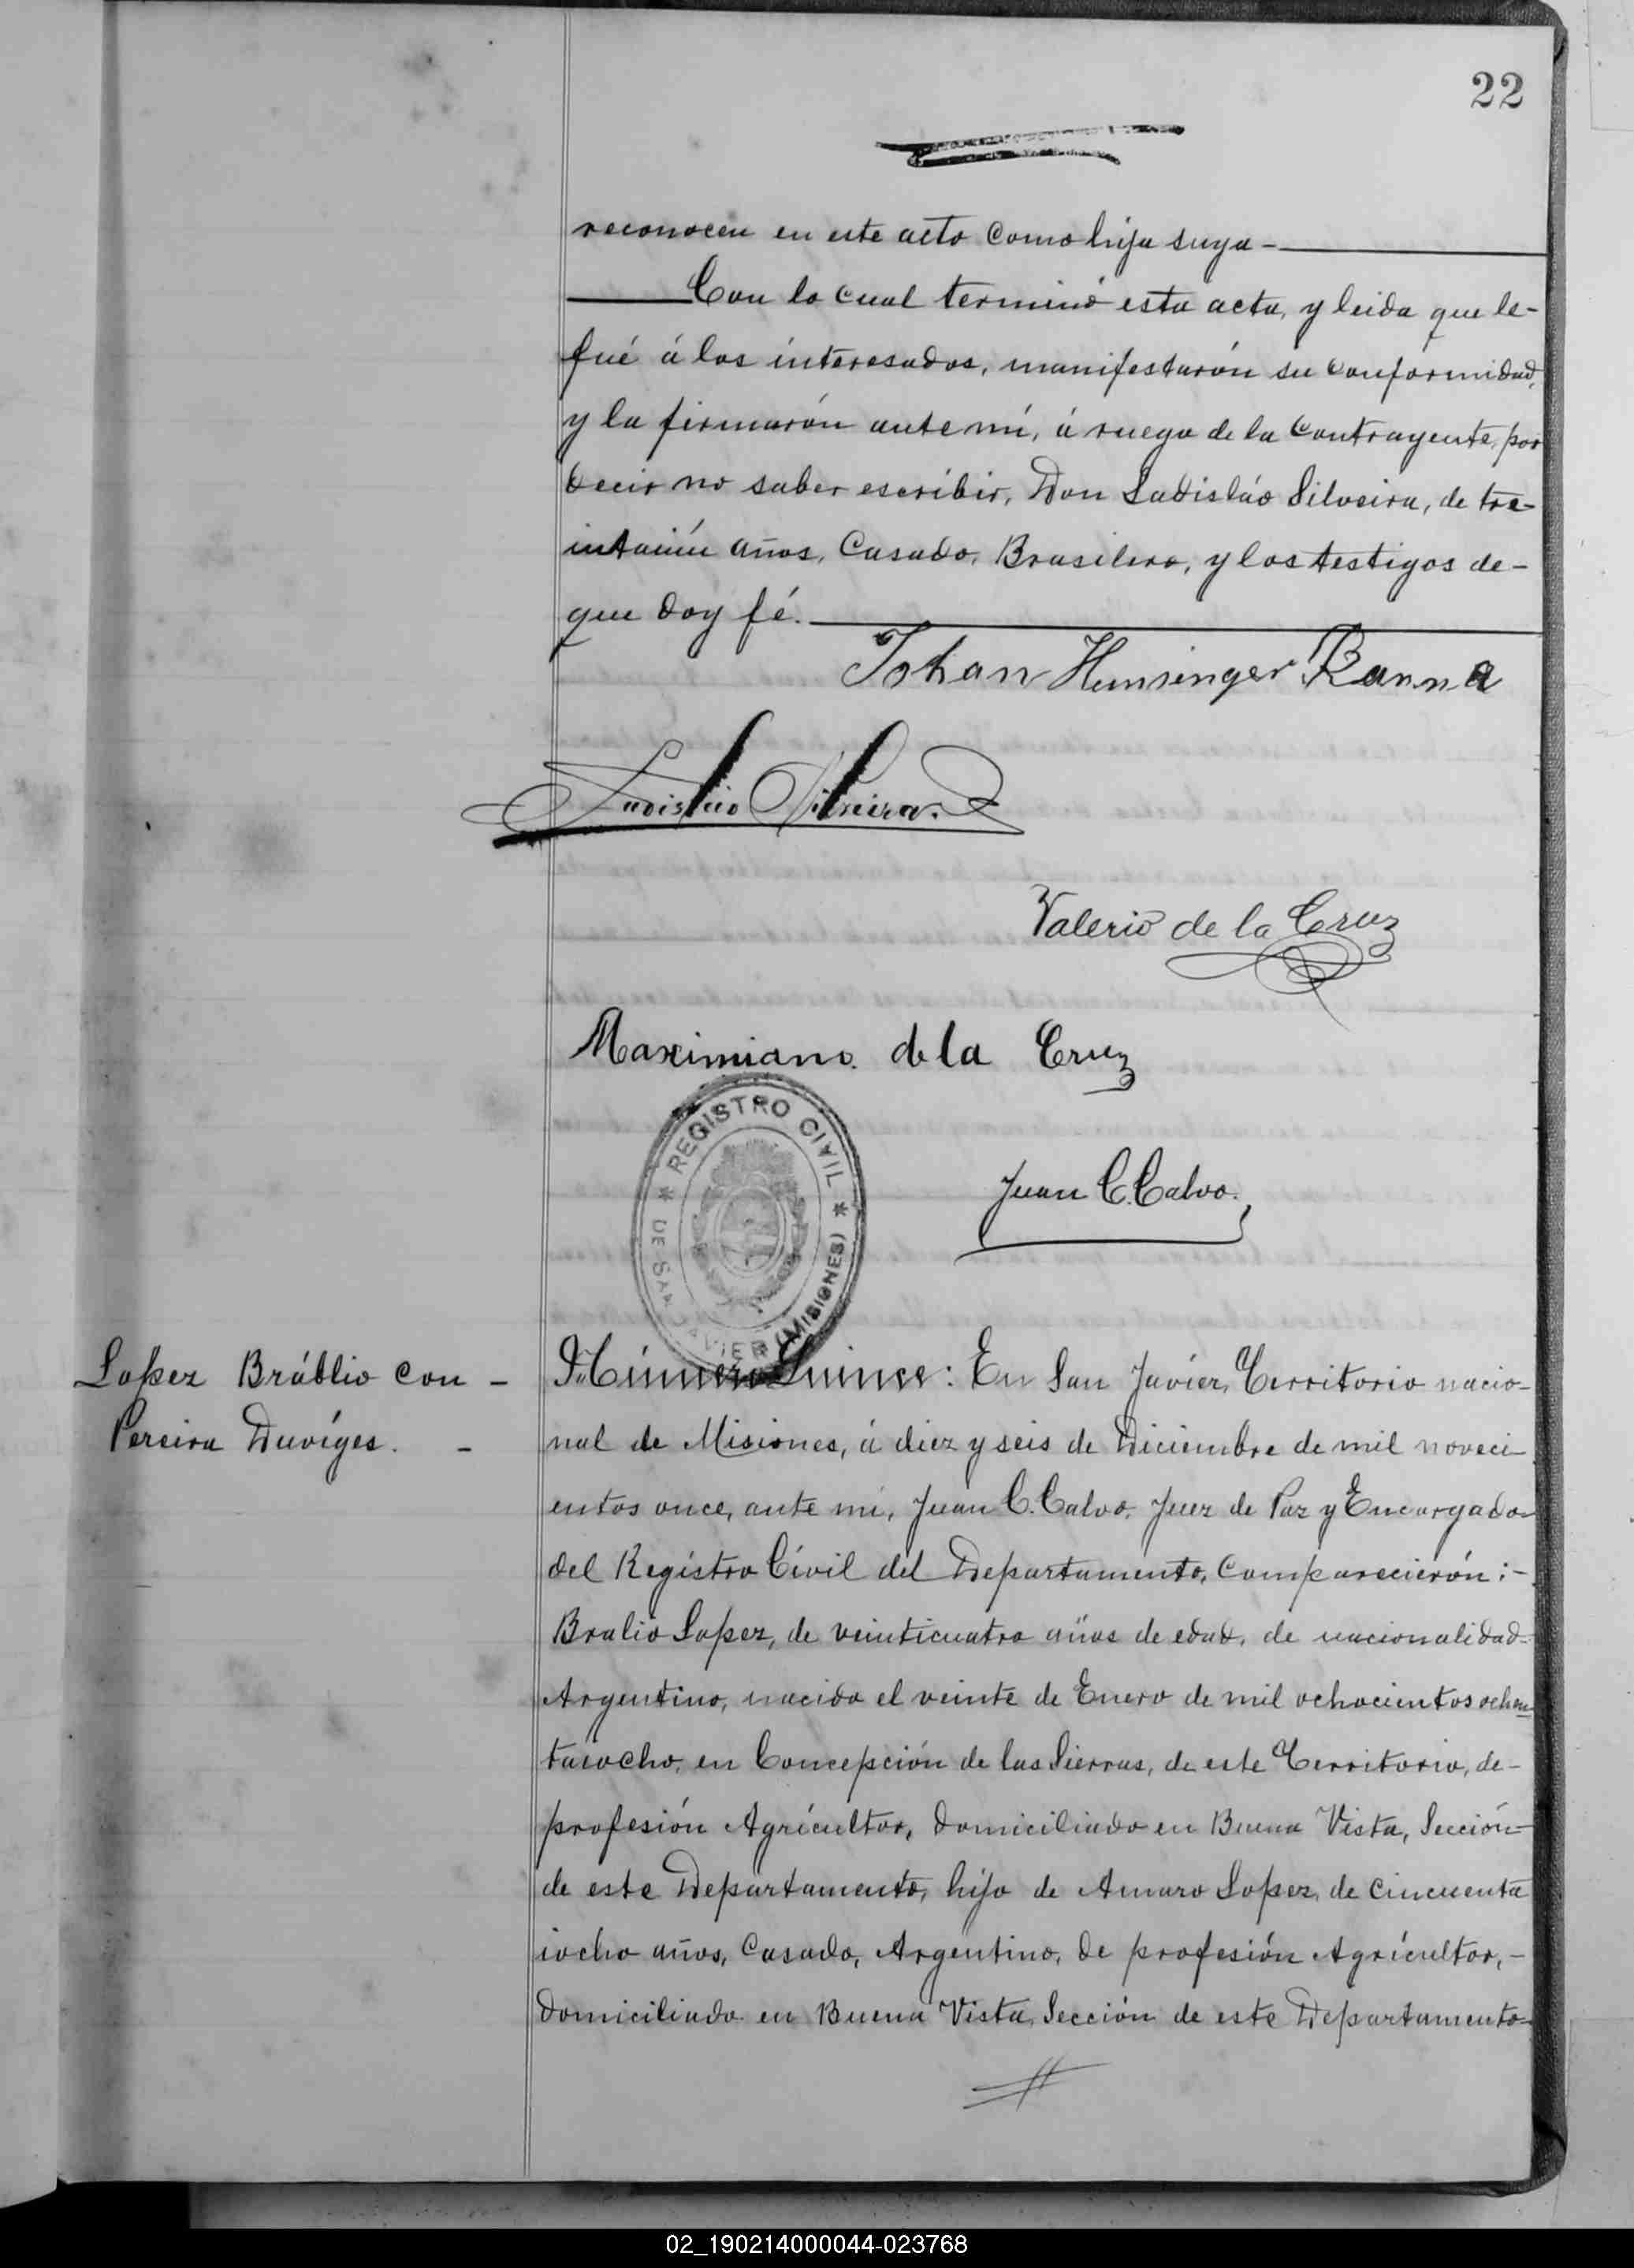 22
reconocen en este acto como hija suya -
Con lo cual terminó esta acta, y leida que le-
fué á los interesados, manifestarón su conformidad,
y la firmarón ante mí, á ruego de la contrayente, por
decir no saber escribir, Don Ladisláo Silveira, de tre-
intaiún años, Casado, Brasilero, y los testigos de-
que doy fé.
Johan Hunsinger Ranna
Ladislao Silveira.
Valerio de la Cruz
Maximiano de la Cruz
REGISTRO CIVIL
DE SAN JAVIER (MISIONES)
Juan C. Calvo.
Lopez Bráblio con -
Pereira Duviges. -
Número Quince: En San Javier, Territorio nacio-
nal de Misiones, á diez y seis de Diciembre de mil noveci
entos once, ante mí, Juan C. Calvo, Juez de Paz y Encargado
del Registro Civil del Departamento, Comparecierón: -
Bralio Lopez, de veinticuatro años de edad, de nacionalidad
Argentino, nacido el veinte de Enero de mil ochocientos ochen
taiocho, en Concepción de las Sierras, de este Territorio, de-
profesión Agricultor, domiciliado en Buena Vista, Sección
de este Departamento, hijo de Amaro Lopez, de Cincuenta
iocho años, Casado, Argentino, de profesión Agricultor, -
domiciliado en Buena Vista, Sección de este Departamento
02_190214000044-023768